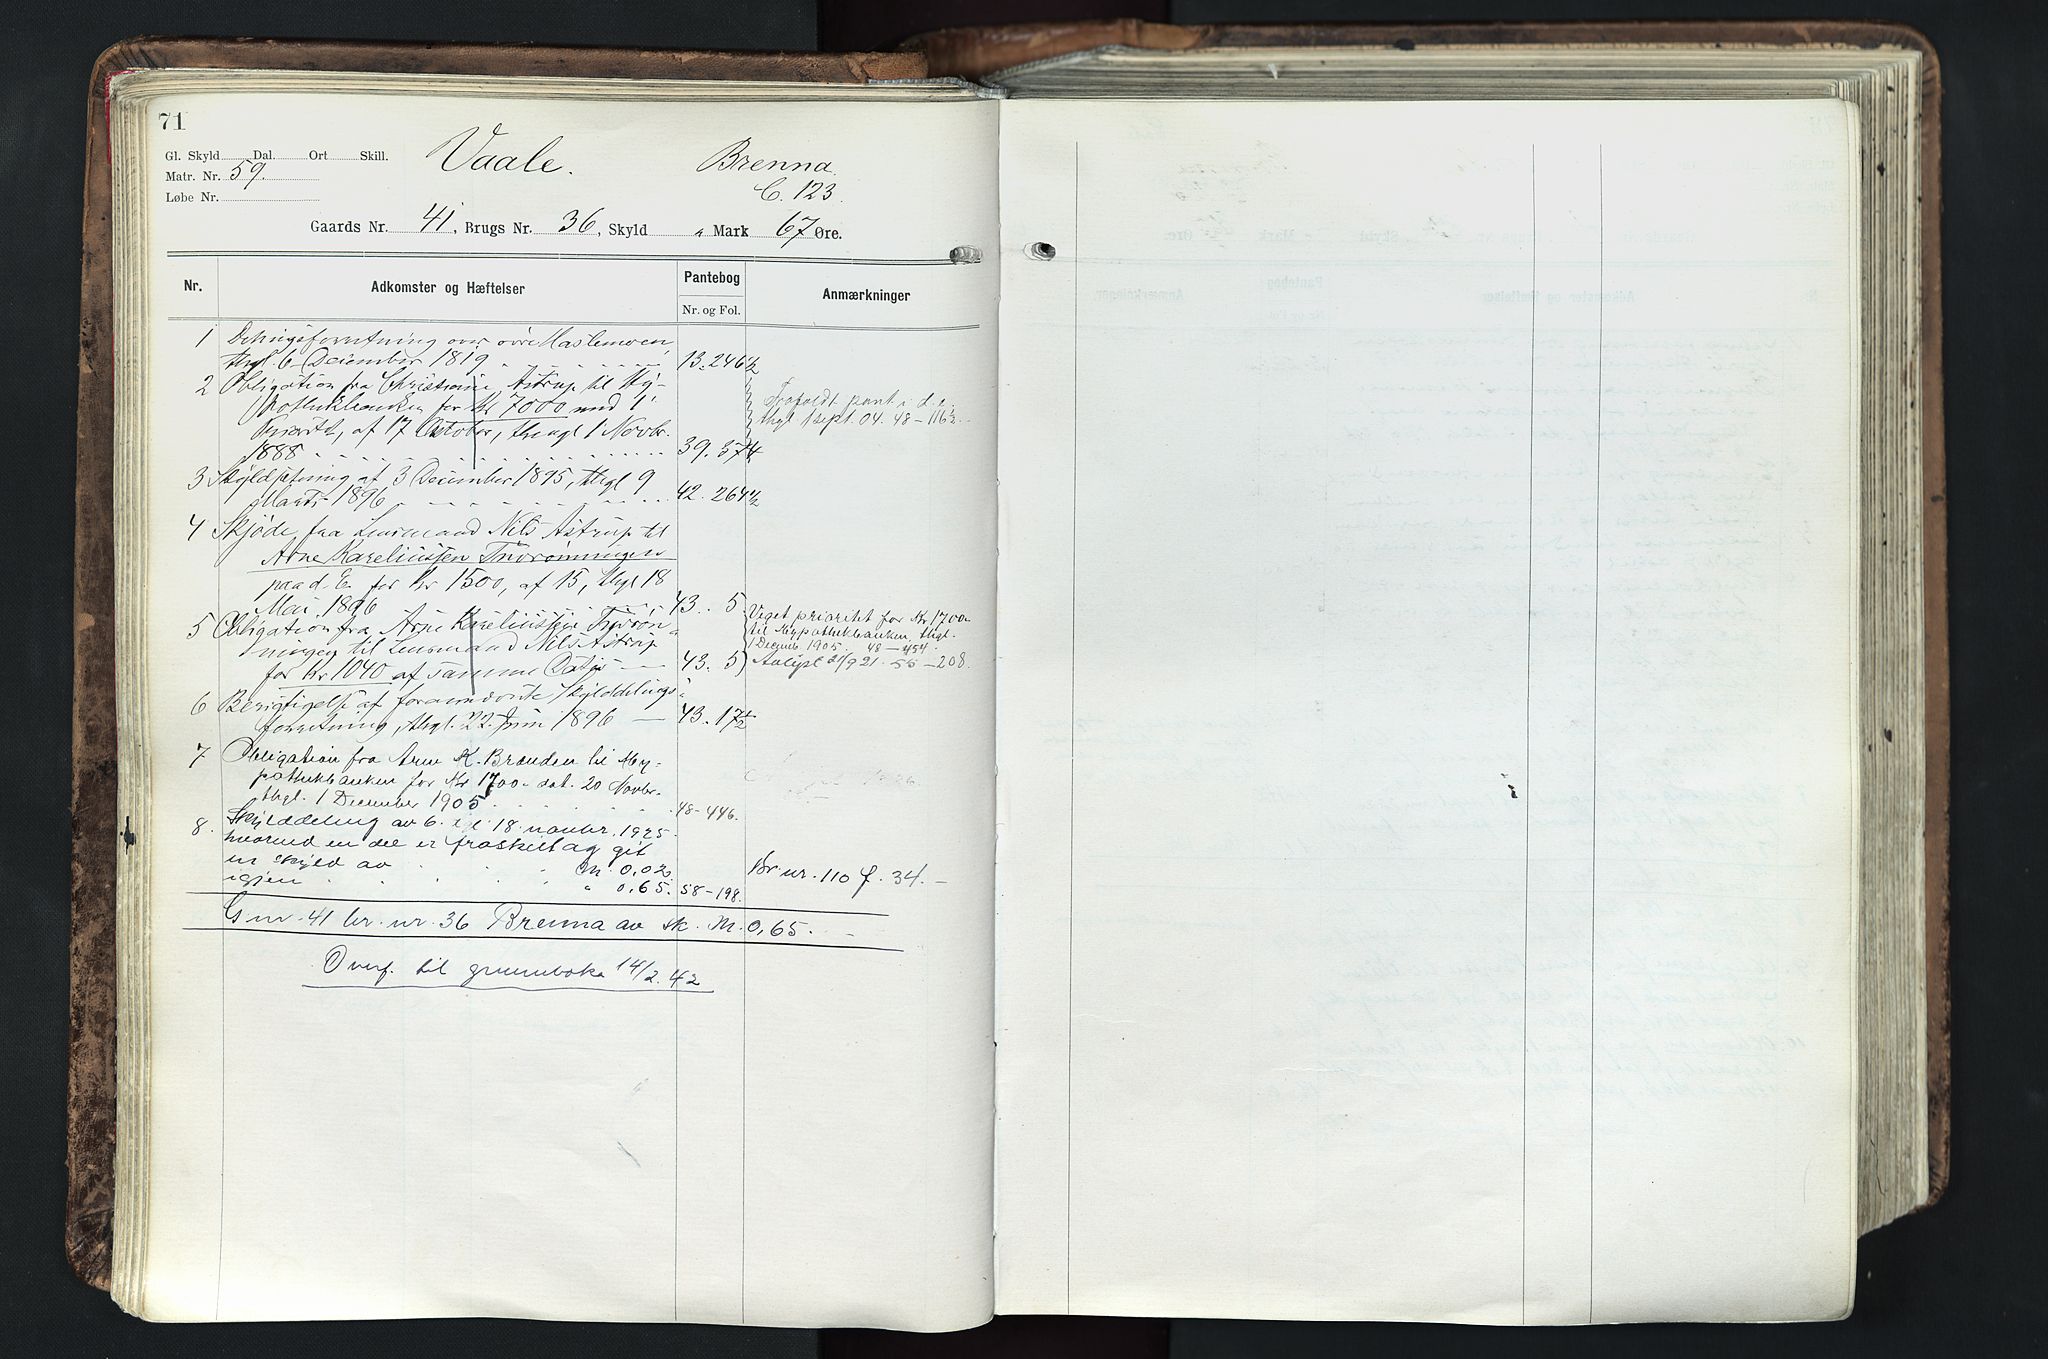 71
Gl. Skyld Dal. Ort Skill.
Vaale. Brenna
Matr. Nr. 59.
C. 123.
Løbe Nr.
Gaards Nr. 41, Brugs Nr. 36, Skyld " Mark 67 Øre.
Nr. Adkomster og Hæftelser Pantebog Anmærkninger
Nr. og Fol.
1 Delingsforretning over øvre Haslemoen,
thgl 6 December 1819 13. 246 1/2
2 Obligation fra Christiane Astrup til Hy-
pothekbanken for Kr 7000 med 1'
Prioritet, af 17 October, thingl 1 Novbr.
1888 39. 374
Frafaldt pant i d. e.
thgl 1 sept. 04. 48 - 116 1/2
3 Skyldsetning af 3 December 1895, thgl 9
Marts 1896 42. 264 1/2
4 Skjøde fra Lensmand Nils Astrup til
Arne Kareliussen
paa d. E. for Kr 1500, af 15, thgl 18
Mai 1896 43. 5
5 Obligation fra Arne Kareliussen
ningen til Lensmand Nils Astrup
for Kr 1040 af samme Dato 43. 5
Veget prioritet for Kr 1700-
til Hypothekbanken, thgl.
1 Decemb 1905. 48 - 454.
Avlyst 21/9 21. 55 - 208.
6 Berigtigelse af foranævnte Skylddelings-
forretning, thgl. 22. Juni 1896 43. 17 1/2
7 Obligation fra Arne K. Brænden til Hy-
pothekbanken for Kr 1700- dat. 20 Novbr.
thgl. 1 December 1905 48-446.
8. Skylddeling av 6. 18. novbr. 1925
hvorved en del er fraskilt og git
en skyld av M. 0,02 Br. nr. 110 f. 34. -
igjen " 0,65. 58-198.
G nr. 41 br. nr. 36 Brenna av sk. M. 0,65.
Overf. til grunnboka 14/2. 42